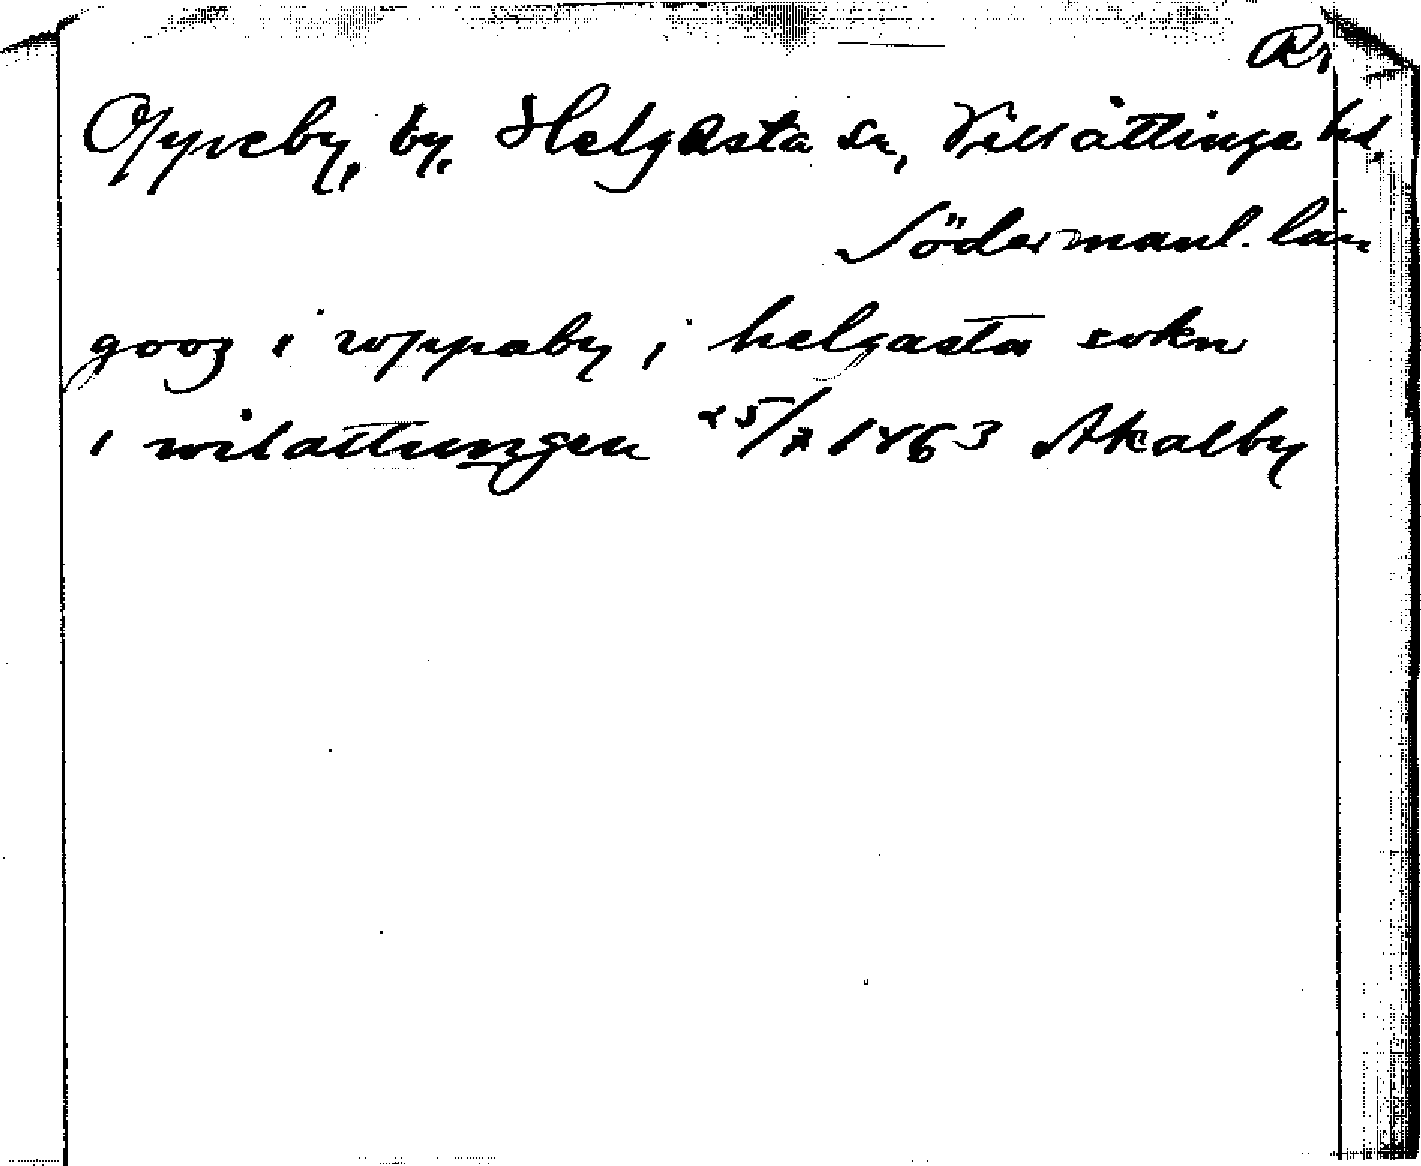 R,
Oppeby, by, Helgesta sn, Villåttinge hd,
Södermanl. län
gooz i woppaby i helgasta sokn
i wilattungen 25/7 1463 Akalby